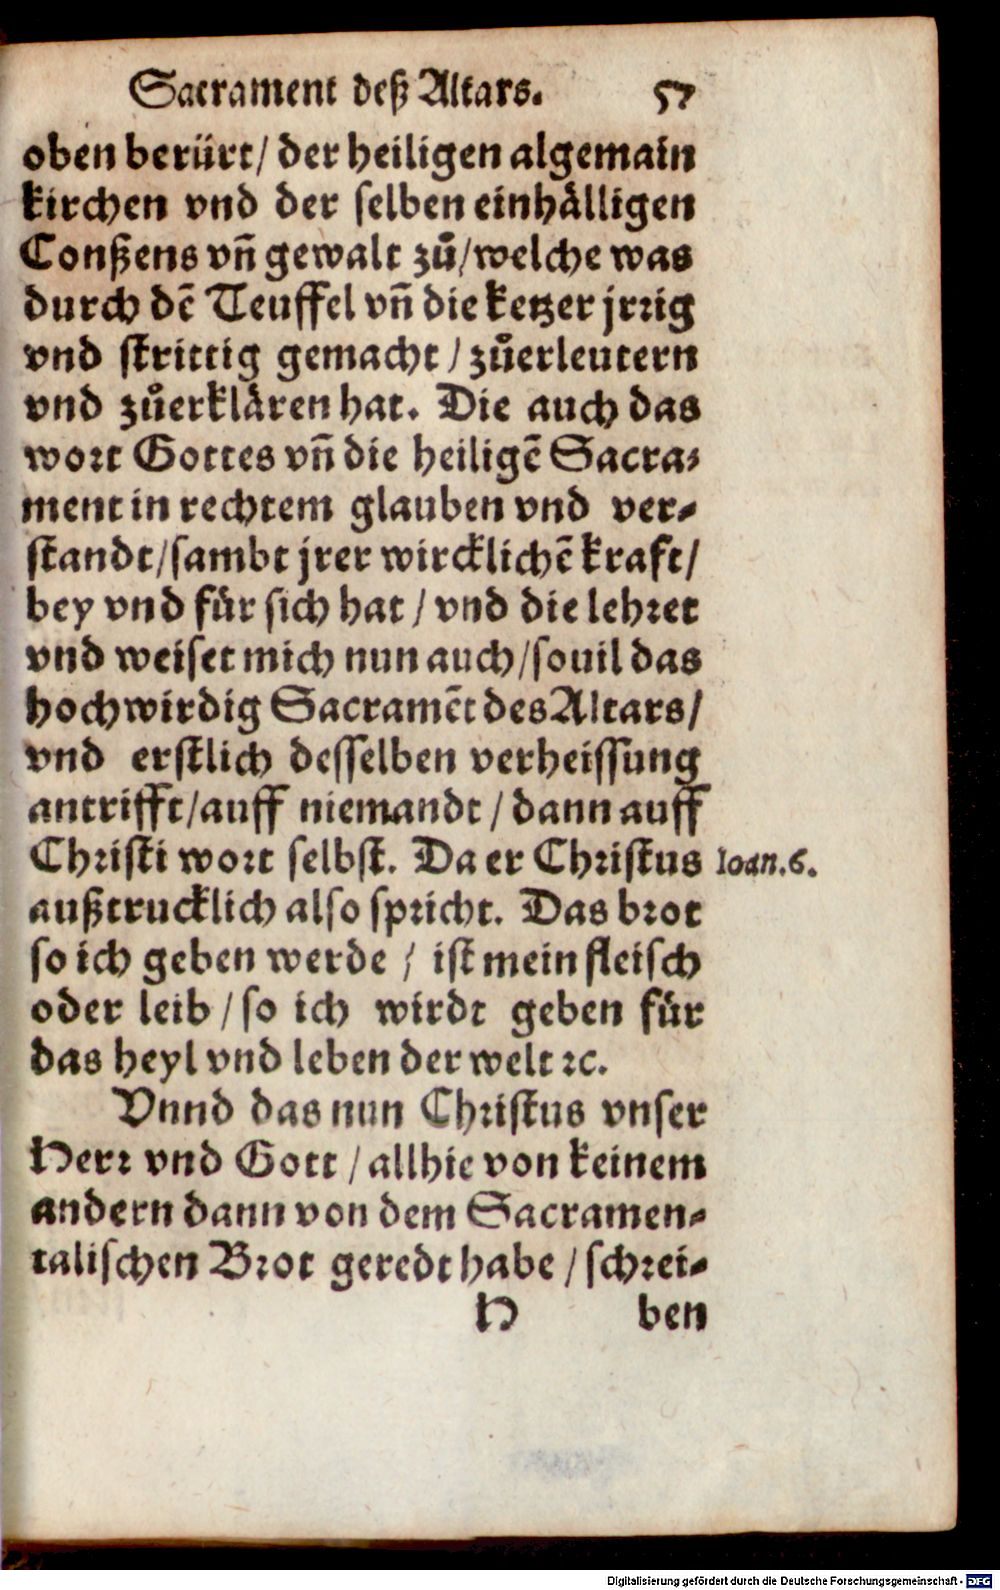 Sacrament deß Altars. 57
oben berürt/ der heiligen algemain
kirchen vnd der selben einhälligen
Conßens vñ gewalt zů/welche was
durch dẽ Teuffel vñ die ketzer jrrig
vnd strittig gemacht / zůerleutern
vnd zůerklären hat. Die auch das
wort Gottes vñ die heiligẽ Sacra-
ment in rechtem glauben vnd ver-
standt/sambt jrer wircklichẽ kraft/
bey vnd für sich hat / vnd die lehret
vnd weiset mich nun auch/souil das
hochwirdig Sacramẽt des Altars/
vnd erstlich desselben verheissung
antrifft/auff niemandt / dann auff
Christi wort selbst. Da er Christus Ioan.6.
außtrucklich also spricht. Das brot
so ich geben werde / ist mein fleisch
oder leib / so ich wirdt geben für
das heyl vnd leben der welt ꝛc.
Vnnd das nun Christus vnser
Herr vnd Gott / allhie von keinem
andern dann von dem Sacramen-
talischen Brot geredt habe / schrei-
H ben
Digitalisierung gefördert durch die Deutsche Forschungsgemeinschaft - DFG